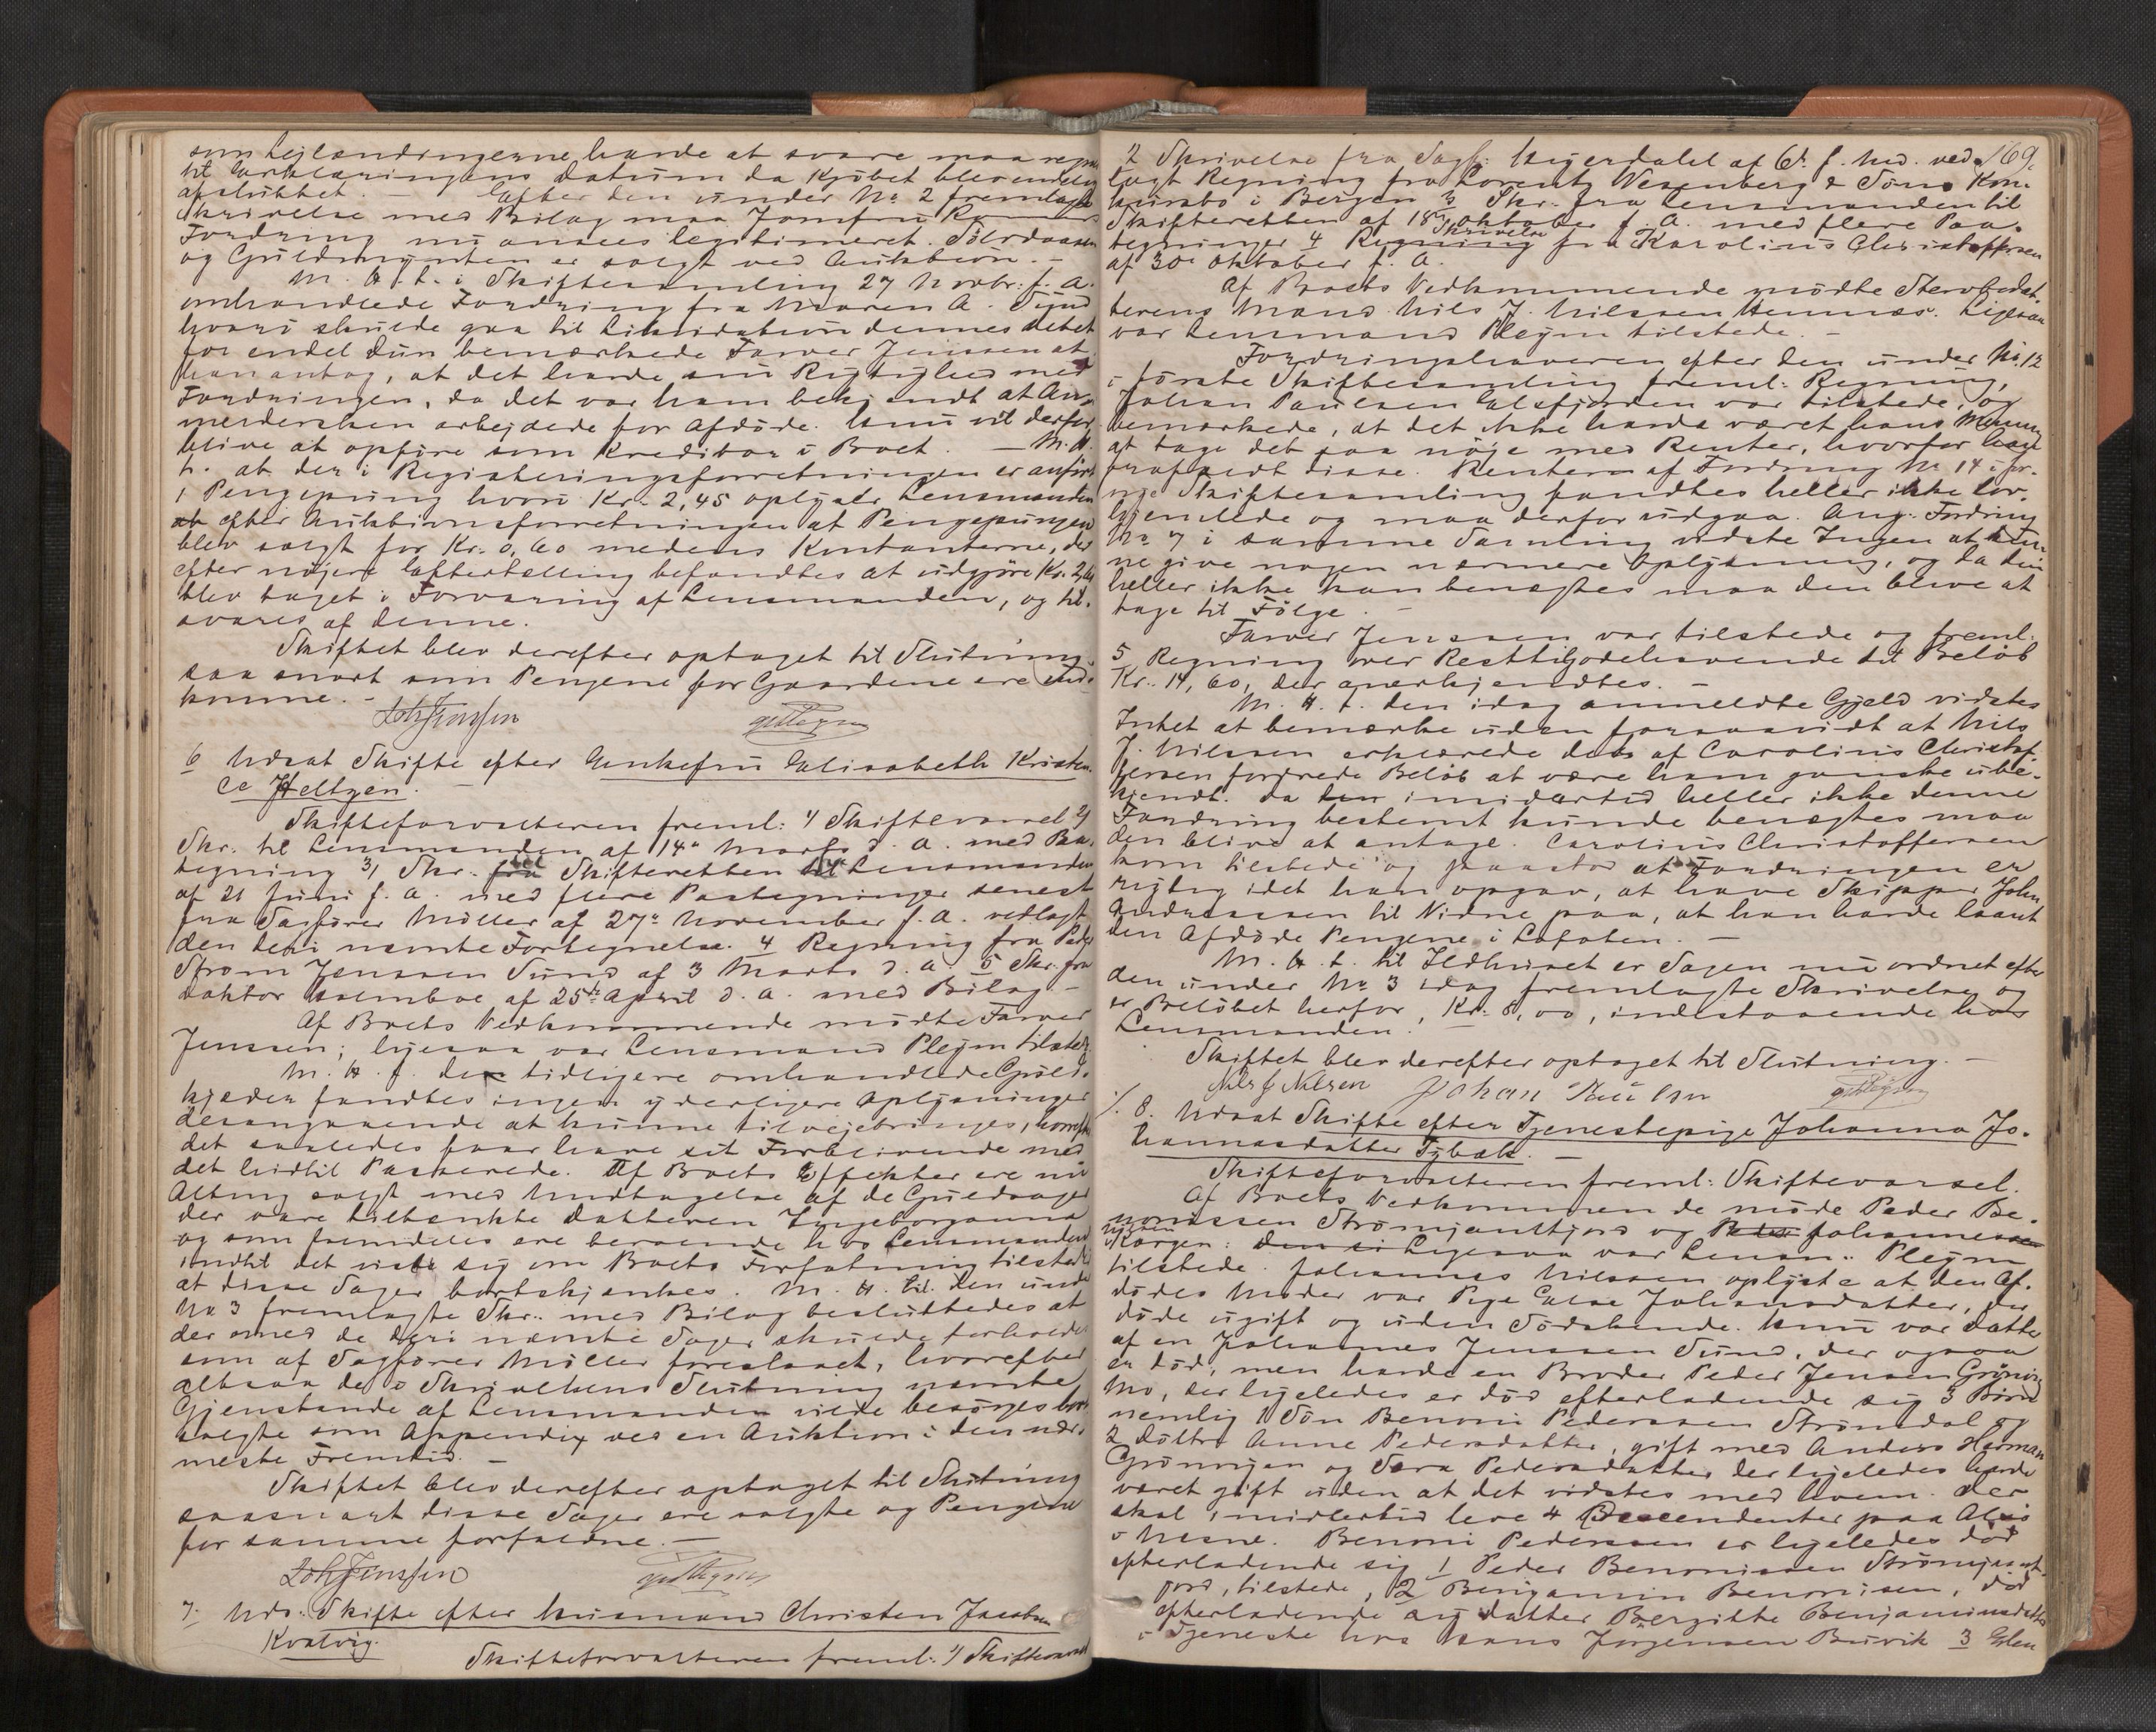 som Lejlændingerne havde at svare maa regnes
til Erklæringens Datum da Kjøbet blev endelig
afsluttet. Efter den under No 2 fremlagte
Skrivelse med Bilag maa Jomfru
Fordring nu ansees legitimeret. Sølvdaasen
og Guldmynten er solgt ved Auktion. –
M. H. t. i Skiftesamling 27 Novbr: f. A.
omhandlede Fordring fra Maren A. Sund
hvori skulde gaa til Likvidation dennes Debet
for endel Dun bemærkede Farver Jenssen at
han antog, at det havde sin Rigtighed med
Fordringen, da det var ham bekjendt at An-
merdersken arbejdede for Afdøde. Hun vil derfor
blive at opføre som Kreditor i Boet. – M. H.
t. at der i Registeringsforretningen er anført
1 Pengepung hvori Kr. 2,45 oplyste Lensmanden
efter Auktionsforretningen at Pengepungen
blev solgt for Kr. 0,60 medens Kontanterne, der
efter nøjere Eftertælling befandtes at udgjøre Kr. 2,
blev taget i Forvaring af Lensmanden, og til-
svares af denne.
Skiftet blev derefter optaget til Slutning
saa snart som Pengene for Gaardene ere ind-
komne. –
Joh Jenssen
6 Udsat Skifte efter Enkefru Elisabeth Kristen-
ce Heltzen. –
Skifteforvalteren freml: 1) Skiftevarsel 2)
Skr. til Lensmanden af 14de Marts d. A. med Paa-
tegning 3) Skr. fra Skifteretten til Lensmanden
af 21 Juni f. A. med flere Paategninger senest
fra Sagfører Møller af 27de November f. A. vedlagt
den deri nævnte Fortegnelse. 4 Regning fra Peder
Strøm Jenssen Sund af 3 Marts d. A. 5 Skr. fra
Doktor Holmboe af 25de April d. A. med Bilag –
Af Boets Vedkommende mødte Farver
Jenssen; ligesaa var Lensmand Plejm tilstede.
M. H. t. den tidligere omhandlede Guld-
kjeder fandtes ingen yderligere Oplysninger
desangaaende at kunne tilvejebringes, hvorefter
det saaledes faar have sit Forblivende med
det hidtil Passerede. Af Boets Effekter ere nu
Alting solgt med Undtagelse af de Guldsager
der vare tiltænkte Datteren Ingeborganna
og som fremdeles ere beroende hos Lensmanden
indtil det viste sig om Boets Forfatning tilstede
at disse Sager bortskjænkes. M. H. til den under
No 3 fremlagte Skr. med Bilag besluttedes at
der med de deri nævnte Sager skulde forholdes
som af Sagfører Møller foreslaaet, hvorefter
altsaa de i Skrivelsens Slutning nævnte
Gjenstande af Lensmanden vilde besørges bort-
solgte som Appendix ved en Auktion i den nær-
meste Fremtid. –
Skiftet blev derefter optaget til Slutning
saasnart disse Sager ere solgte og Pengene
for samme forfaldne. –
Joh Jenssen
7. Uds: Skifte efter Husmand Christen Jacobsen
Kvalvig.
Skifteforvalteren freml: 1) Skiftevarsel
169.
2 Skrivelse fra Sagf: Kigerdahl af 6te f. Md. ved-
lagt Regning fra Lorentz Wesenberg & Søns Kon-
kursbo i Bergen 3 Skr. fra Lensmanden til
Skifteretten af 18de Oktober f. A. med flere Paa-
tegninger 4 Regning Skrivelse fra Karolius Christoffersen
af 30te Oktober f. A.
Af Boets Vedkommende mødte Stervbodat-
terens Mand Nils J. Nilssen Hemnæs. Ligesaa
var Lensmand Plejm tilstede. –
Fordringshaveren efter den under No. 12
i første Skiftesamling freml: Regning,
Johan Paulsen Elsfjorden var tilstede, og
bemærkede, at det ikke havde været hans Mening
at tage det saa nøje med Renter, hvorfor han
frafaldt disse. Renterne af Fordring No 14 i for-
rige Skiftesamling fandtes heller ikke lov-
hjemlede og maa derfor udgaa. Ang. Fordring
No 7 i samme Samling vidste Ingen at kun-
ne give nogen nærmere Oplysning, og da den
heller ikke kan benægtes maa den blive at
tage til Følge. –
Farver Jenssen var tilstede og freml.
5 Regning over Resttilgodehavende til Beløb
Kr. 14,60, der anerkjendtes. –
M. H. t. den idag anmeldte Gjeld vidstes
Intet at bemærke uden forsaavidt at Nils
J. Nilssen erklærede det af Carolius Christof-
fersen fordrede Beløb at være ham ganske ube-
kjendt. Da imidlertid heller ikke denne
Fordring bestemt kunde benægtes maa
den blive at antage. Carolius Christoffersen
kom tilstede og paastod at Fordringen er
rigtig idet han opgav, at have Skipper John
Andreassen til Vidne paa, at han havde laant
den Afdøde Pengene i Lofoten. –
M. H. t. til Ildhuset er Sagen nu ordnet efter
den under No 3 idag fremlagte Skrivelse og
er Beløbet herfor, Kr. 8,00, indestaaende hos
Lensmanden.
Skiftet blev derefter optaget til Slutning. –
Nils J Nilsen Johan Paulsen
8. Udsat Skifte efter Tjenestepige Johanna Jo-
hannesdatter Fybæk. –
Skifteforvalteren freml: Skiftevarsel.
Af Boets Vedkommende møde Peder Be-
nonissen Strømjantjord og Peder Johannessen
Korgen: den i Ligesaa var Lensm: Plejm
tilstede. Johannes Nilssen oplyste at den Af-
dødes Moder var Pige Else Johansdatter, der
døde ugift og uden Sødskende. Hun var Datter
af en Johannes Jenssen Sund, der ogsaa
er død, men havde en Broder Peder Jensen Grønin
Mo, der ligeledes er død efterladende sig 3 Børn
nemlig 1 Søn Benoni Pederssen Strømdal og
2 Døttre Anne Pedersdatter, gift med Anders Herman
Grønnigen og Sara Pedersdatter der ligeledes havde
været gift uden at det vidstes med hvem. Der
skal imidlertid leve 4 Descendenter paa Alsø
i Nesne. Benoni Pederssen er ligeledes død
efterladende sig 1 Peder Benonissen Strømjant-
jord, tilstede, 2 Benjamin Benonisen, død
efterladende sig Datter Bergitte Benjaminsdatter
i Tjeneste hos Hans Jørgensen Buvik 3 Elen